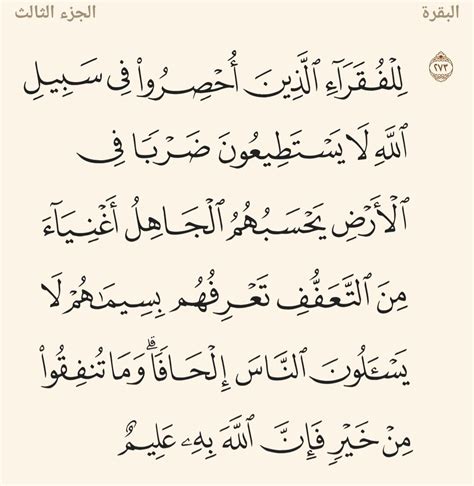 البقرة الجزء الثالث
٢٧٣ لِلْفُقَرَآءِ ٱلَّذِينَ أُحْصِرُوا۟ فِى سَبِيلِ
ٱللَّهِ لَا يَسْتَطِيعُونَ ضَرْبًا فِى
ٱلْأَرْضِ يَحْسَبُهُمُ ٱلْجَاهِلُ أَغْنِيَآءَ
مِنَ ٱلتَّعَفُّفِ تَعْرِفُهُم بِسِيمَٰهُمْ لَا
يَسْـَٔلُونَ ٱلنَّاسَ إِلْحَافًا ۗ وَمَا تُنفِقُوا۟
مِنْ خَيْرٍ فَإِنَّ ٱللَّهَ بِهِۦ عَلِيمٌ